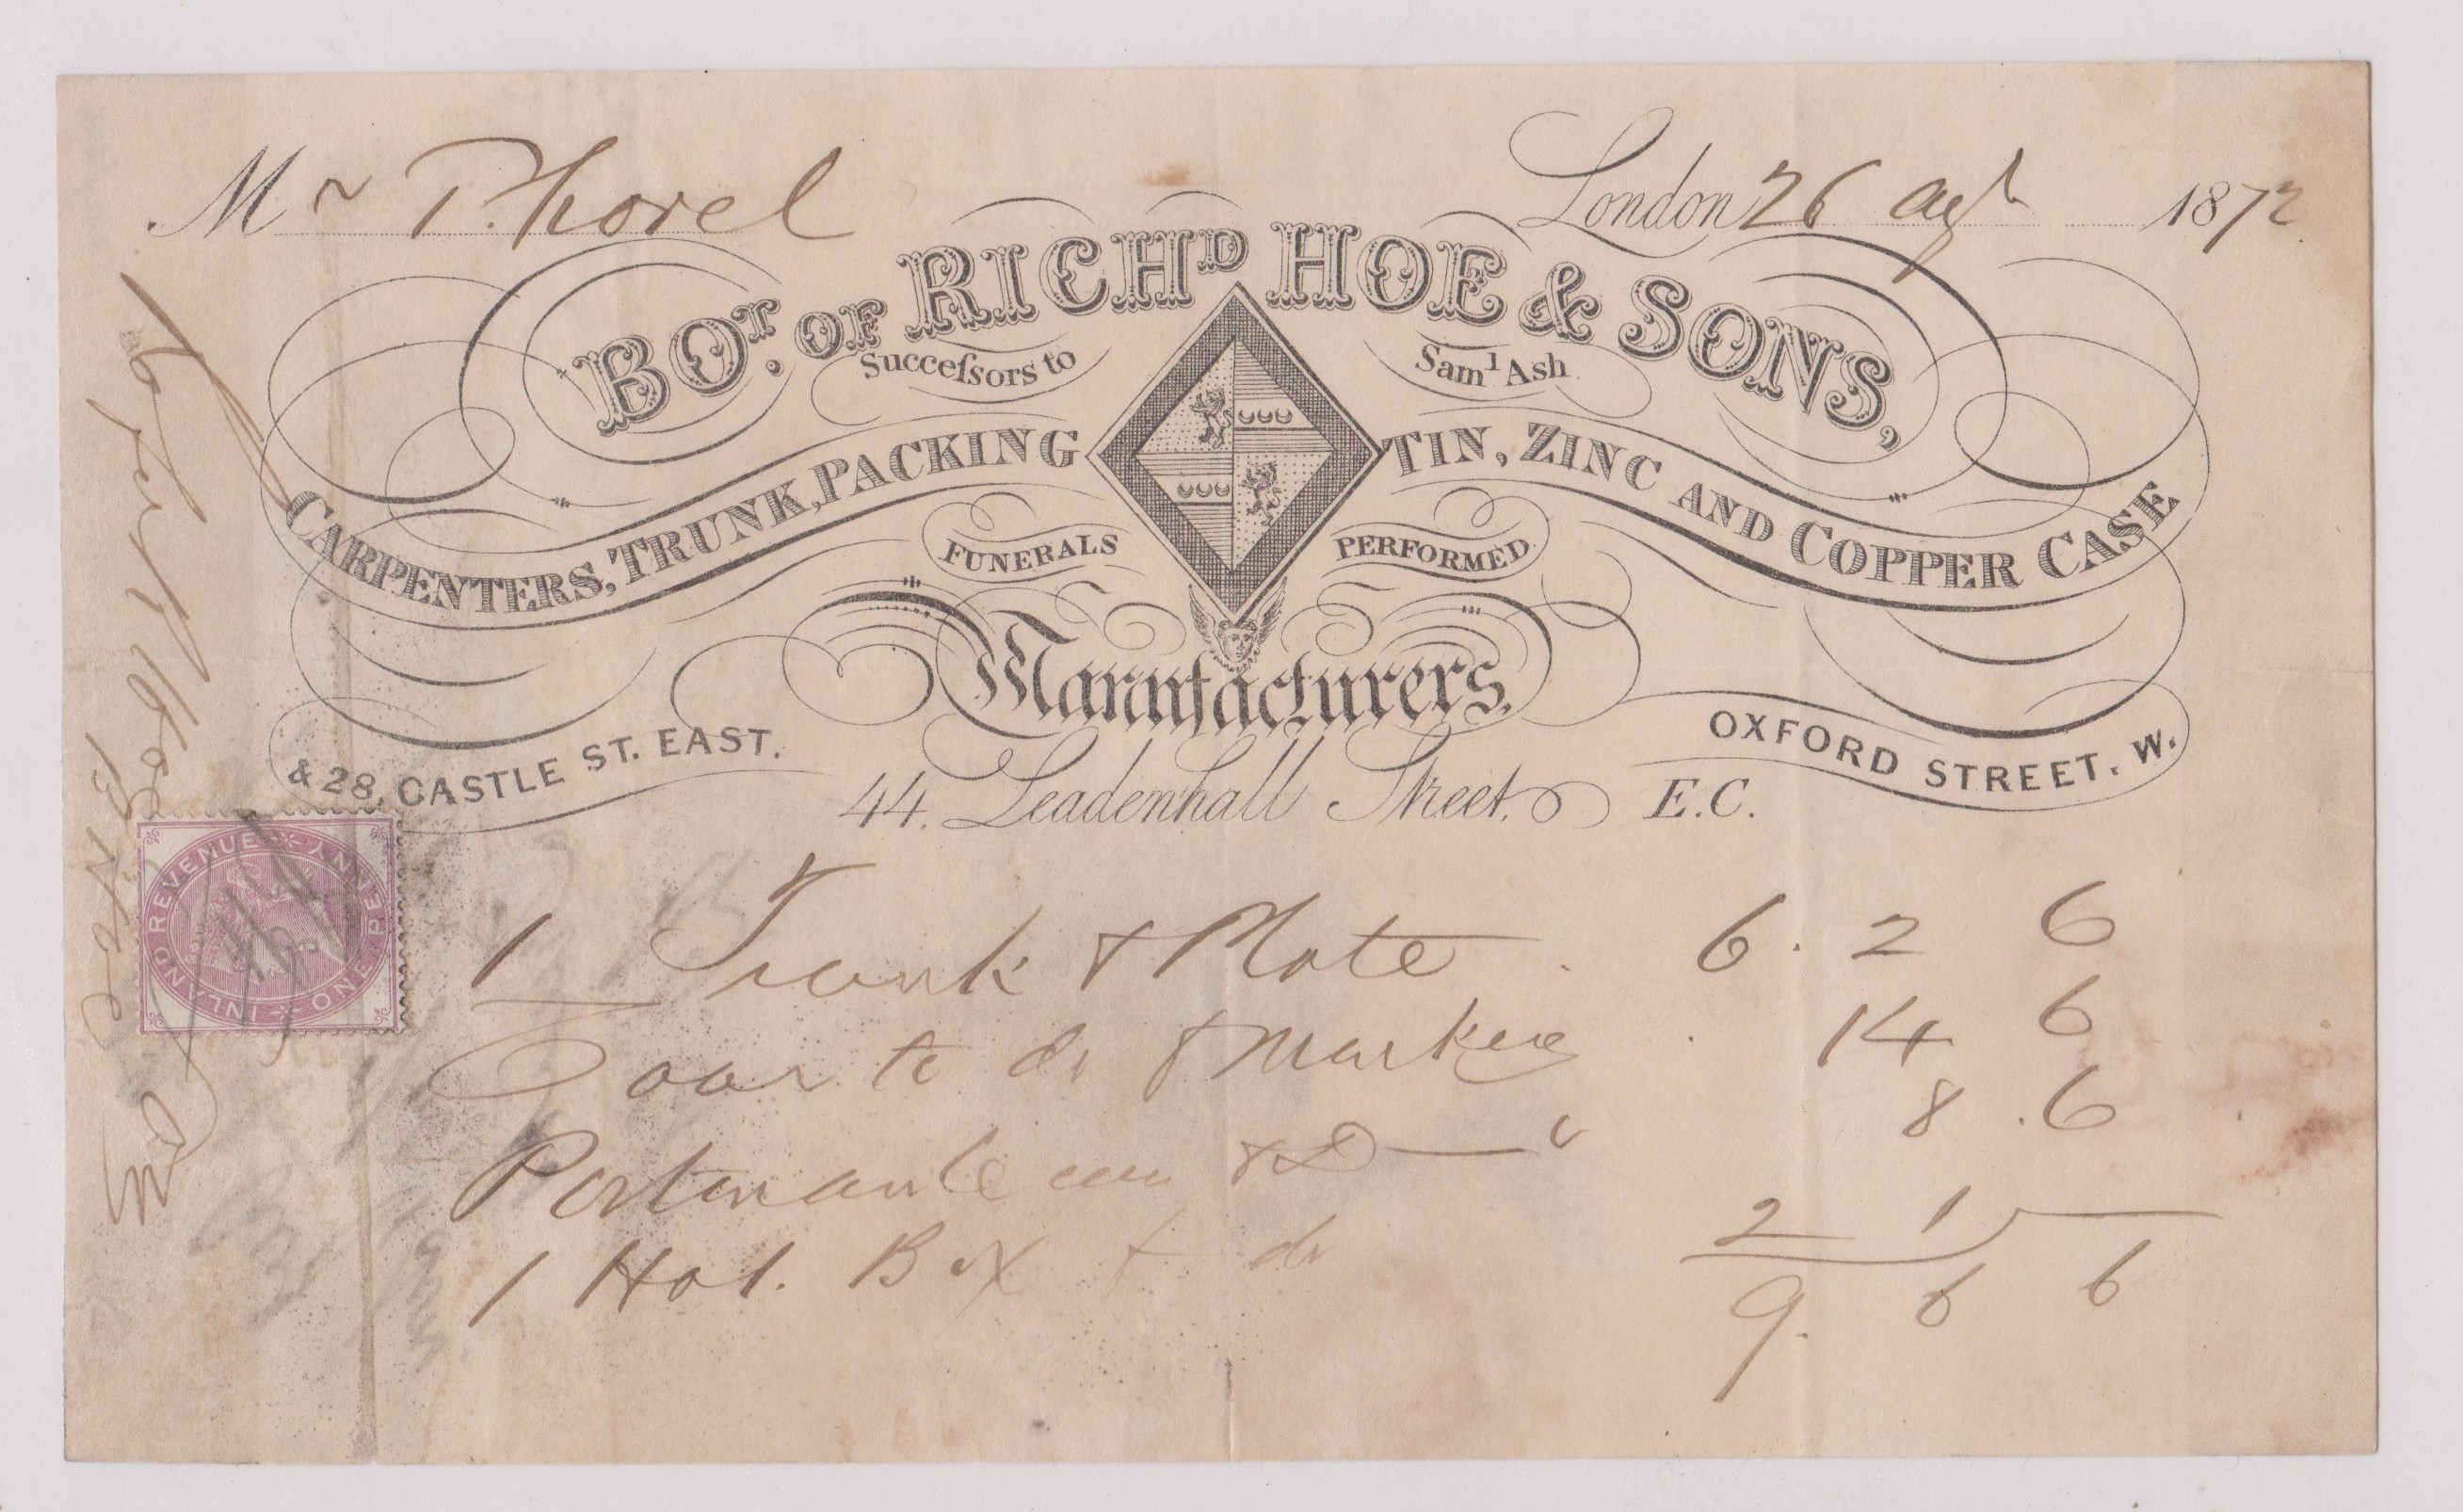 Mr Thorel
London 26 Augt 1872
BOT. OF RICHD HOE & SONS,
Succeſsors to Saml Ash
CARPENTERS, TRUNK, PACKING TIN, ZINC AND COPPER CASE
FUNERALS PERFORMED
Manufacturers.
& 28, CASTLE ST. EAST. OXFORD STREET. W.
44. Leadenhall Street. E.C.
INLAND REVENUE ONE PENNY
1 Trunk & Plate 6. 2 6
to do & Marking 14 6
Portmanteau & D 8 .6
1 Hat. Box & do 2 1
9. 6 6